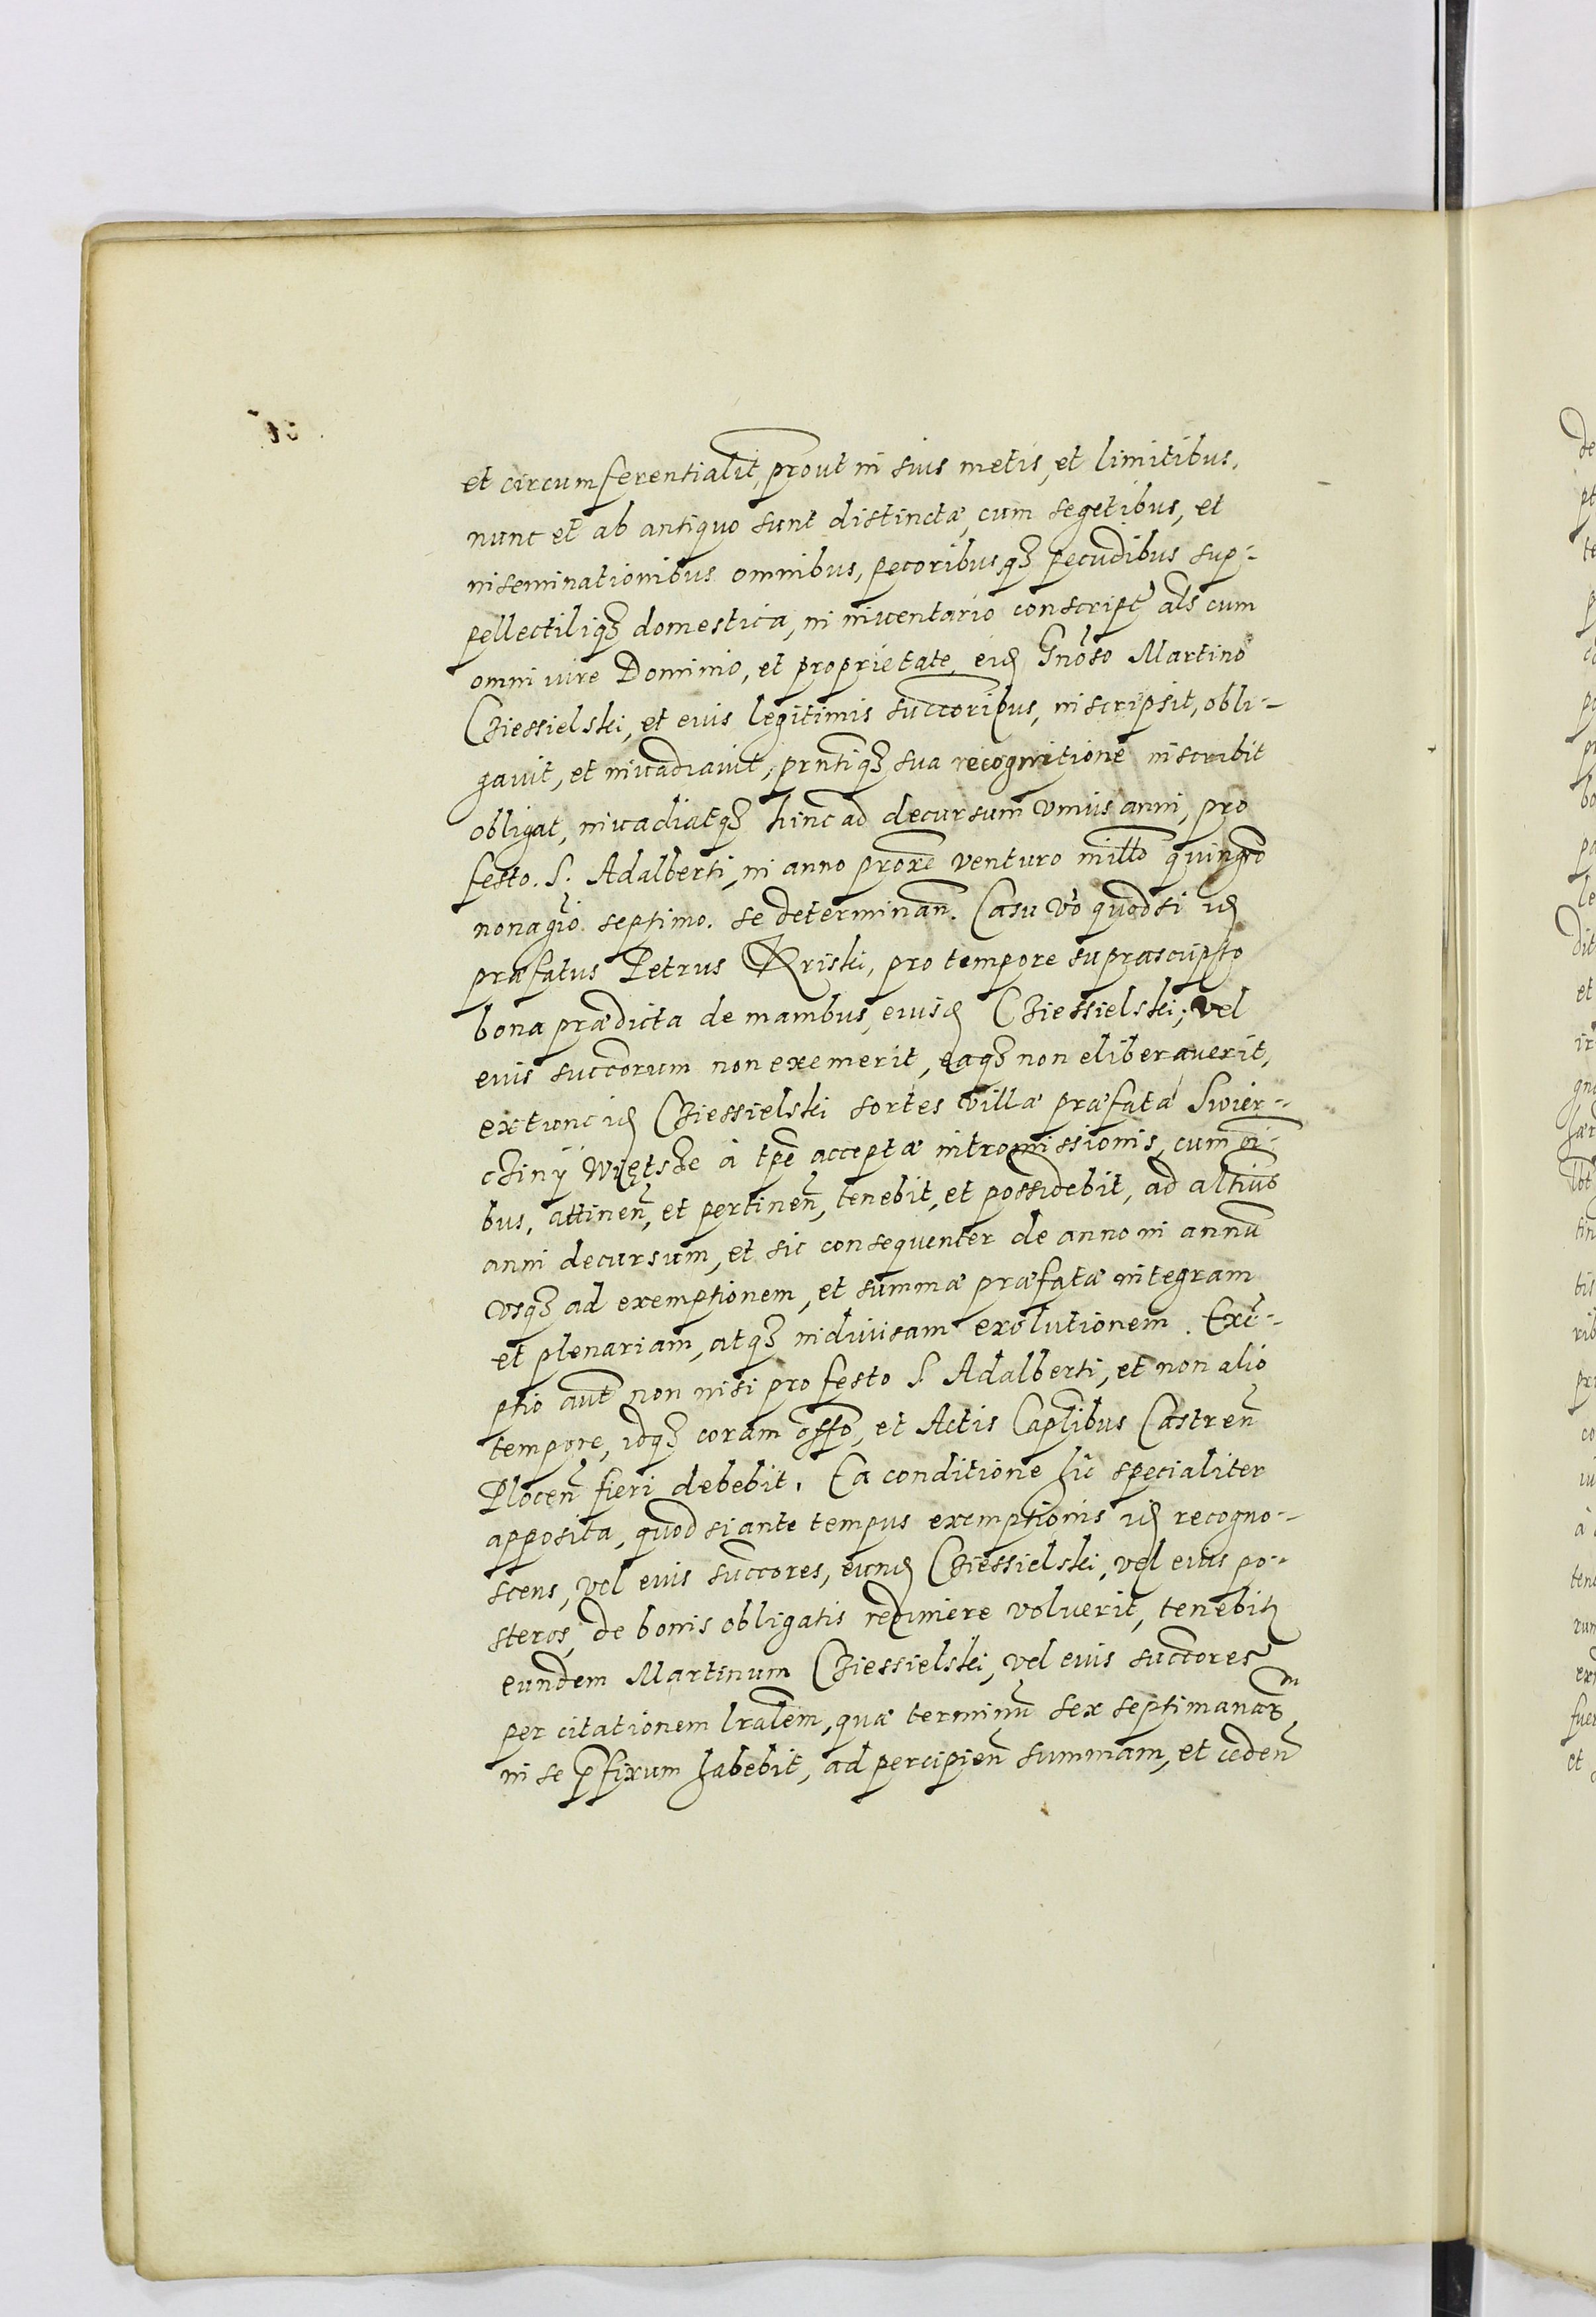 et circumferentialit, prout in suis metis, et limitibus,
nunc et ab antiquo sunt distinctæ, cum segetibus, et
inseminationibus omnibus, pecoribusqȝ pecudibus sup-
pellectiliqȝ domestica, in inventario conscript als cum
omni iure Dominio, et proprietate, eid Gnoso Martino
Cziessielski, et eius legitimis succoribus, inscripsit, obli-
gavit, et invadiavit, prntiqȝ sua recognitione inscribit
obligat, invadiatqȝ hinc ad decursum vnius anni, pro
festo. S. Adalberti, in anno proxe venturo millo quingmo
nonagio septimo. se determinan. Casu vo quod si id
præfatus Petrus Kriski, pro tempore suprascripto
bona prædicta de manibus, eiusd Cziessielski, vel
eius succorum non exemerit, eaqȝ non eliberauerit,
extunc id Cziessielski sortes villæ præfatæ Swier-
cziny Więtsze à tpe acceptæ intromissionis, cum oi-
bus, attinen, et pertinen, tenebit, et possidebit, ad altius
anni decursum, et sic consequenter de anno in annu
vsqȝ ad exemptionem, et summæ præfatæ integram
et plenariam, atqȝ indiuisam exolutionem. Exe-
ptio aut non nisi pro festo S. Adalberti, et non alio
tempore, idqȝ coram offo, et Actis Caplibus Castren
Plocen fieri debebit. Ea conditione hic specialiter
apposita, quod si ante tempus exemptionis id recogno-
scens, vel eius succores, eund Cziessielski, vel eius po-
steros, de bonis obligatis redimere voluerit, tenebit
eundem Martinum Cziessielski, vel eius succores
per citationem lralem, quæ terminu sex septimanar in
in se pfixum habebit, ad percipien summam, et ceden